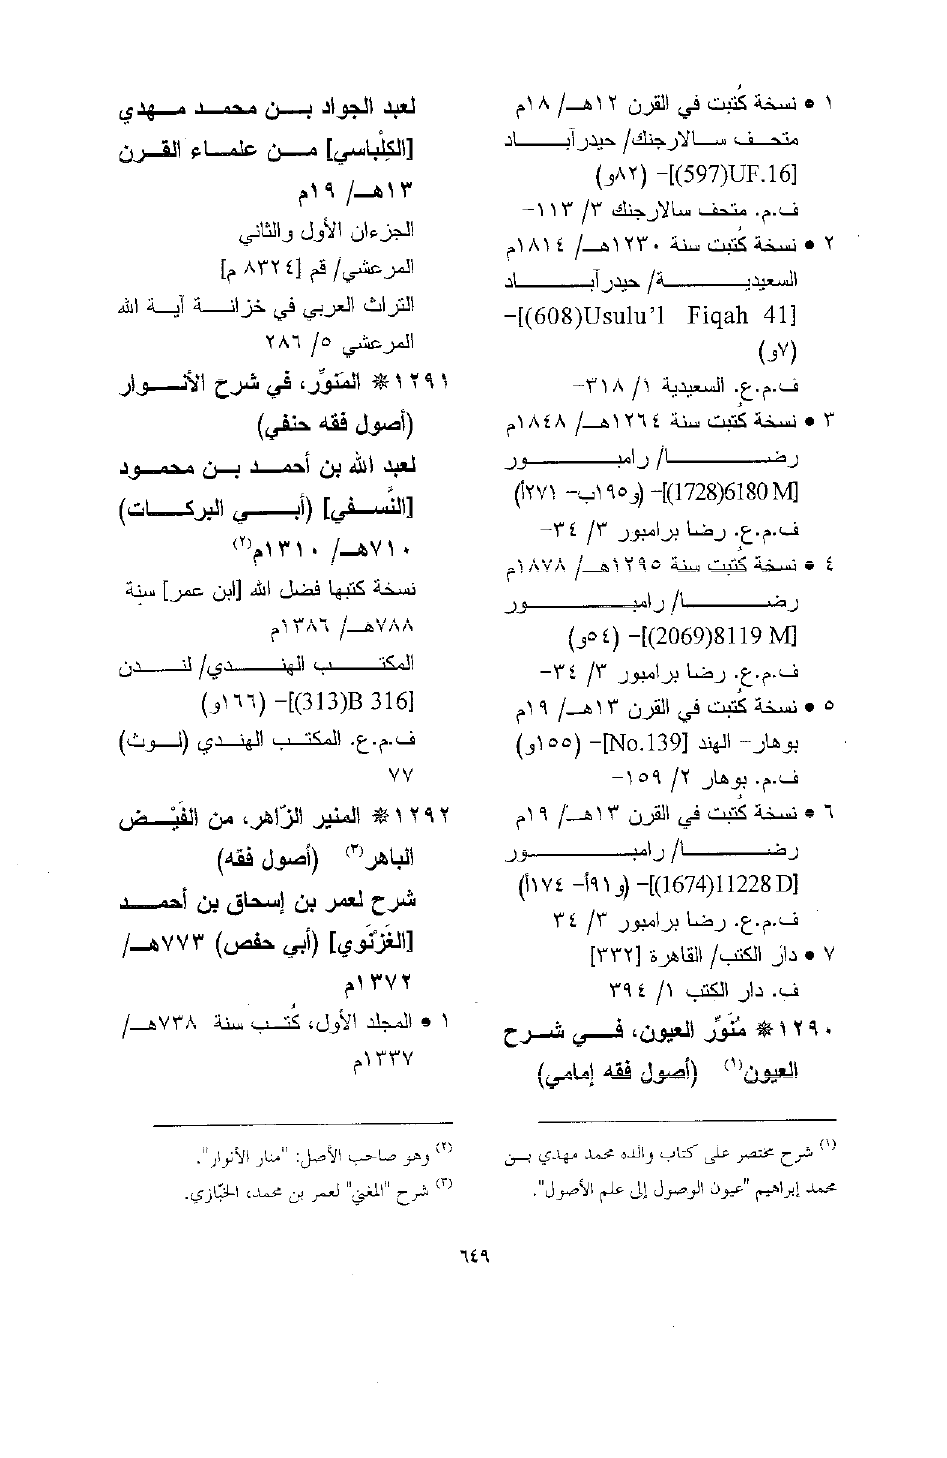 ١ • نسخة كُتبت في القرن ١٢هـ/ ١٨م
متحف سالارجنك/ حيدرآباد
[597)UF.16)]- (٨٢و)
ف.م. متحف سالارجنك ٣/ ١١٣-
٢ • نسخة كُتبت سنة ١٢٣٠هـ/ ١٨١٤م
السعيدية/ حيدرآباد
[608)Usulu'l Fiqah 41)]-
(٧و)
ف.م.ع. السعيدية ١/ ٣١٨-
٣ • نسخة كُتبت سنة ١٢٦٤هـ/ ١٨٤٨م
رضا/ رامبور
[1728)6180 M)]- (و١٩٥ب- ٢٧١أ)
ف.م.ع. رضا برامبور ٣/ ٣٤-
٤ • نسخة كُتبت سنة ١٢٩٥هـ/ ١٨٧٨م
رضا/ رامبور
[2069)8119 M)]- (٥٤و)
ف.م.ع. رضا برامبور ٣/ ٣٤-
٥ • نسخة كُتبت في القرن ١٣هـ/ ١٩م
بوهار- الهند [No.139]- (١٥٥و)
ف.م. بوهار ٢/ ١٥٩-
٦ • نسخة كُتبت في القرن ١٣هـ/ ١٩م
رضا/ رامبور
[1674)11228 D)]- (و٩١أ- ١٧٤أ)
ف.م.ع. رضا برامبور ٣/ ٣٤
٧ • دار الكتب/ القاهرة [٣٣٢]
ف. دار الكتب ١/ ٣٩٤
١٢٩٠* مُنَوِّر العيون، في شرح
العيون(١) (أصول فقه إمامي)
لعبد الجواد بن محمد مهدي
[الكِلْباسي] من علماء القرن
١٣هـ/ ١٩م
الجزءان الأول والثاني
المرعشي/ قم [٨٣٢٤ م]
التراث العربي في خزانة آية الله
المرعشي ٥/ ٢٨٦
١٢٩١* المَنوِّر، في شرح الأنوار
(أصول فقه حنفي)
لعبد الله بن أحمد بن محمود
[النَّسفي] (أبي البركات)
٧١٠هـ/ ١٣١٠م(٢)
نسخة كتبها فضل الله [ابن عمر] سنة
٧٨٨هـ/ ١٣٨٦م
المكتب الهندي/ لندن
[313)B 316)]- (١٦٦و)
ف.م.ع. المكتب الهندي (لوث)
٧٧
١٢٩٢* المنير الزّاهر، من الفَيْض
الباهر(٣) (أصول فقه)
شرح لعمر بن إسحاق بن أحمد
[الغَزْنَوي] (أبي حفص) ٧٧٣هـ/
١٣٧٢م
١ • المجلد الأول، كُتب سنة ٧٣٨هـ/
١٣٣٧م
(١) شرح مختصر على كتاب والده محمد مهدي بن
محمد إبراهيم "عيون الوصول إلى علم الأصول".
(٢) وهو صاحب الأصل: "منار الأنوار".
(٣) شرح "المغني" لعمر بن محمد، الخبّازي.
٦٤٩